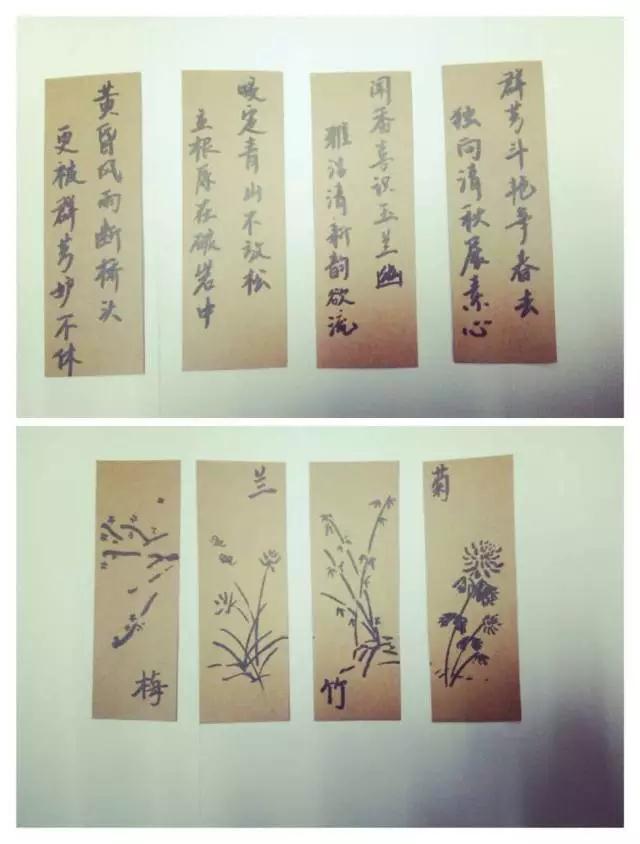 黄昏风雨断桥头
更被群芳妒不休
咬定青山不放松
立根原在破岩中
闻香喜识玉兰幽
雅洁清新韵欲流
群芳斗艳争春去
独向清秋展素心
梅
兰
竹
菊